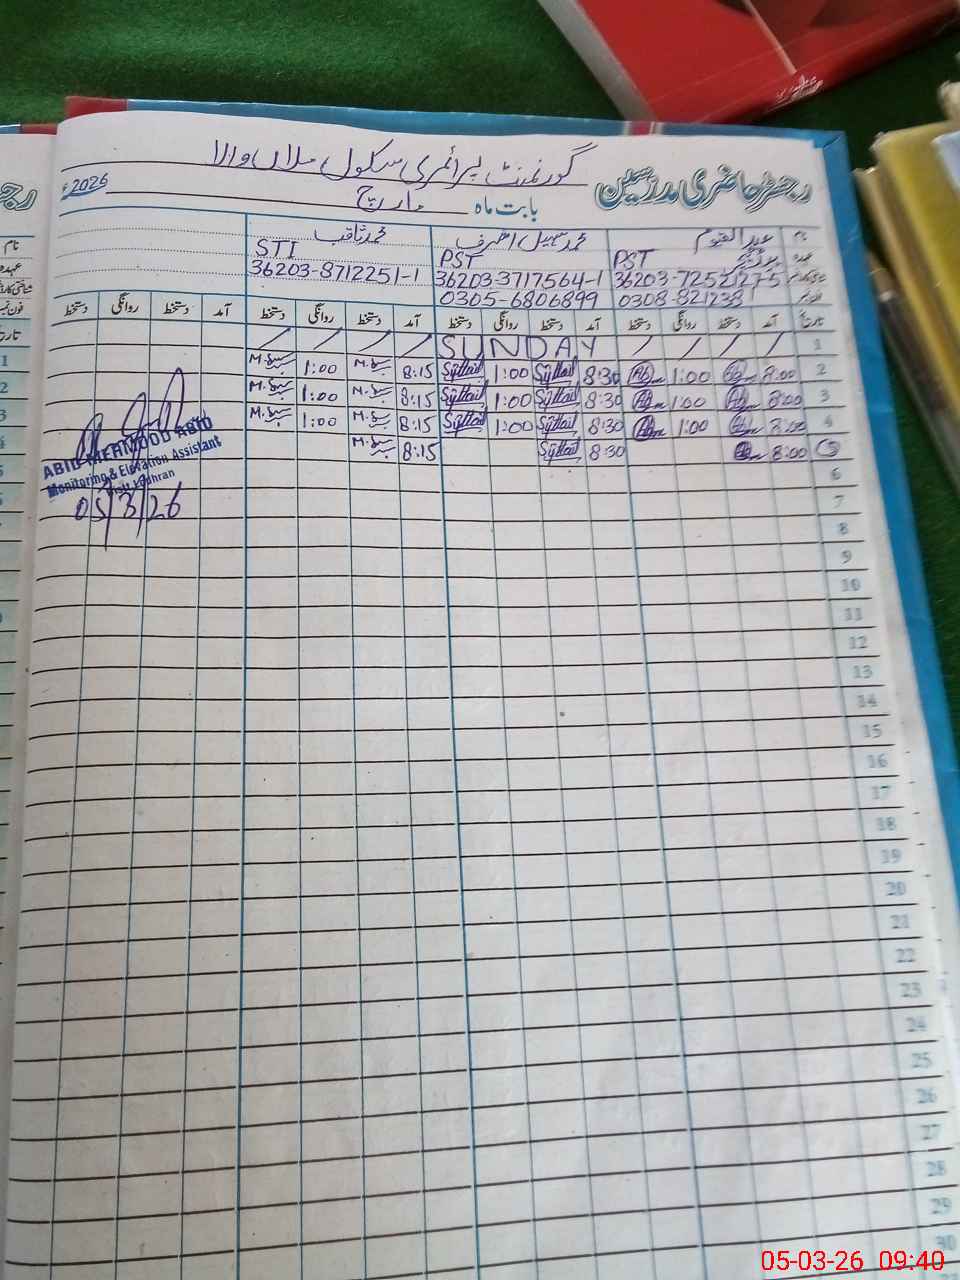 گورنمنٹ پرائمری سکول ملاں والا
رجسٹر حاضری مدرسین بابت ماہ مارچ 2026ء
نام عبدالقیوم محمد سہیل اشرف محمد ثاقب
عہدہ PST PST STI
36203-7252127-5 36203-3717564-1 36203-8712251-1
0308-821238 0305-6806899
تاریخ آمد دستخط روانگی دستخط آمد دستخط روانگی دستخط آمد دستخط روانگی دستخط آمد دستخط روانگی دستخط
1 / / / / SUNDAY / / / /
2 8:00 1:00 8:30 1:00 8:15 1:00
3 8:00 1:00 8:30 1:00 8:15 1:00
4 8:00 1:00 8:30 1:00 8:15 1:00
5 8:00 8:30 8:15
6
7
8
9
10
11
12
13
14
15
16
17
18
19
20
21
22
23
24
25
26
27
28
29
30
ABID MEHMOOD ABID
Monitoring & Evaluation Assistant
Distt Lodhran
05/3/26
05-03-26 09:40